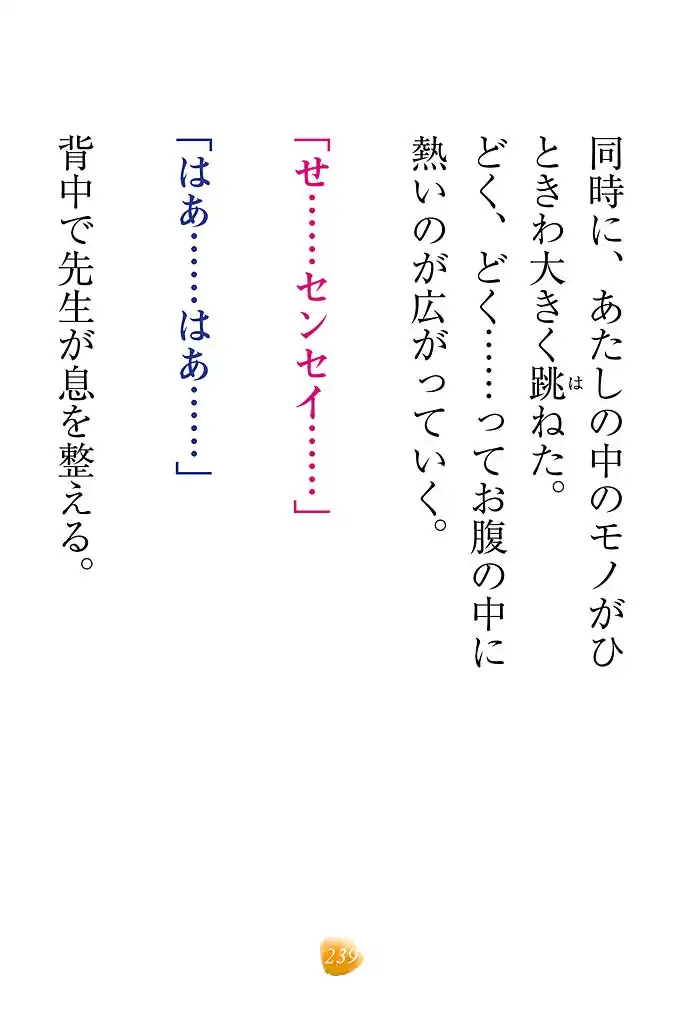 同時に、あたしの中のモノがひ
ときわ大きく跳ねた。
は
どく、どく……ってお腹の中に
熱いのが広がっていく。
「せ……センセイ……」
「はあ……はあ……」
背中で先生が息を整える。
239